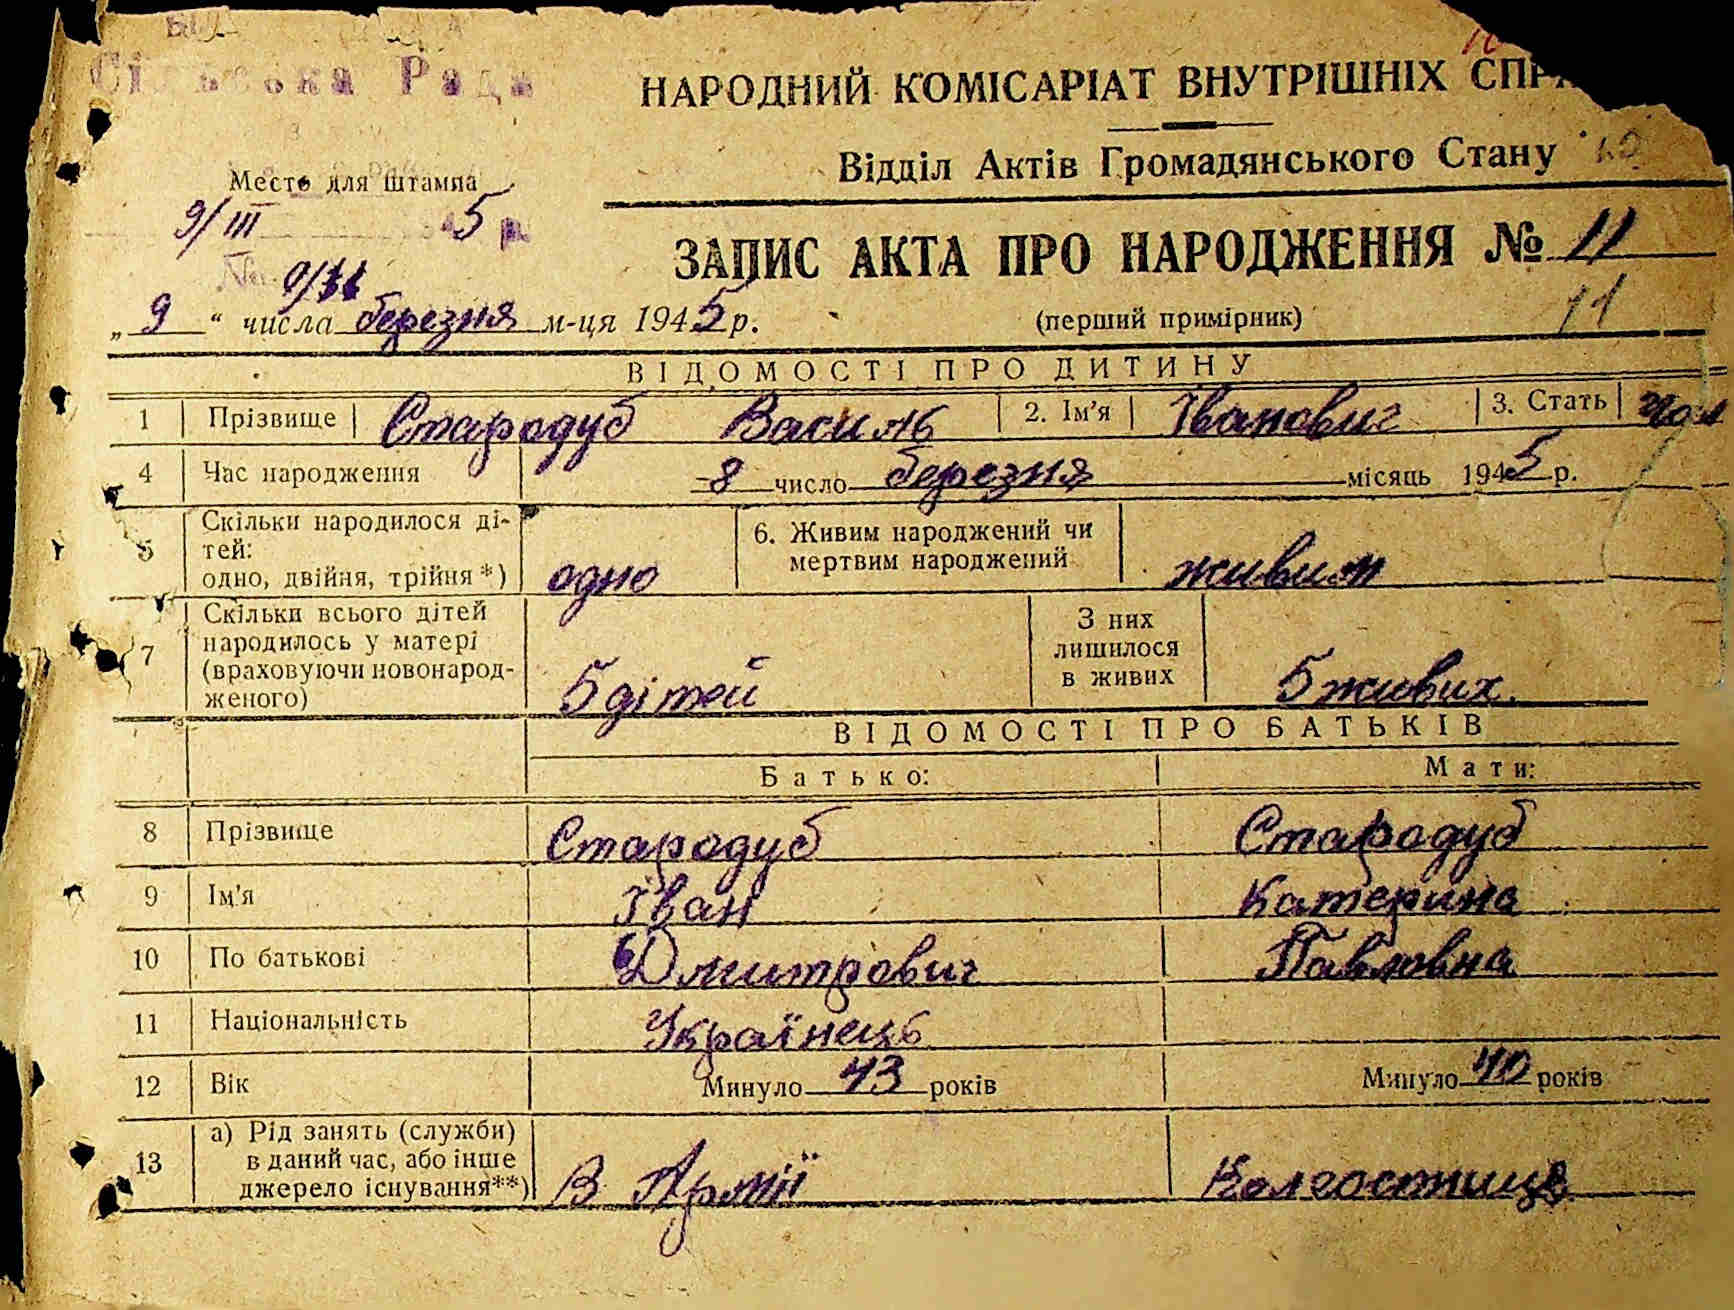 Сільська Рада
НАРОДНИЙ КОМІСАРІАТ ВНУТРІШНІХ СПРА
Відділ Актів Громадянського Стану
Место для штампа
9/III 5 р.
ЗАПИС АКТА ПРО НАРОДЖЕННЯ № 11
№
„9“ числа березня м-ця 1945 р.
(перший примірник) 11
ВІДОМОСТІ ПРО ДИТИНУ
1 Прізвище Стародуб Василь 2. Ім'я Іванович 3. Стать чол
4 Час народження 8 число березня місяць 1945 р.
5 Скільки народилося ді-
тей:
одно, двійня, трійня*) одно
6. Живим народжений чи
мертвим народжений живим
7 Скільки всього дітей
народилось у матері
(враховуючи новонарод-
женого) 5 дітей
З них
лишилося
в живих 5 живих.
ВІДОМОСТІ ПРО БАТЬКІВ
Батько: Мати:
8 Прізвище Стародуб Стародуб
9 Ім'я Іван Катерина
10 По батькові Дмитрович Павловна
11 Національність Українець
12 Вік Минуло 43 років Минуло 40 років
13 а) Рід занять (служби)
в даний час, або інше
джерело існування**) В Армії Колгоспниця